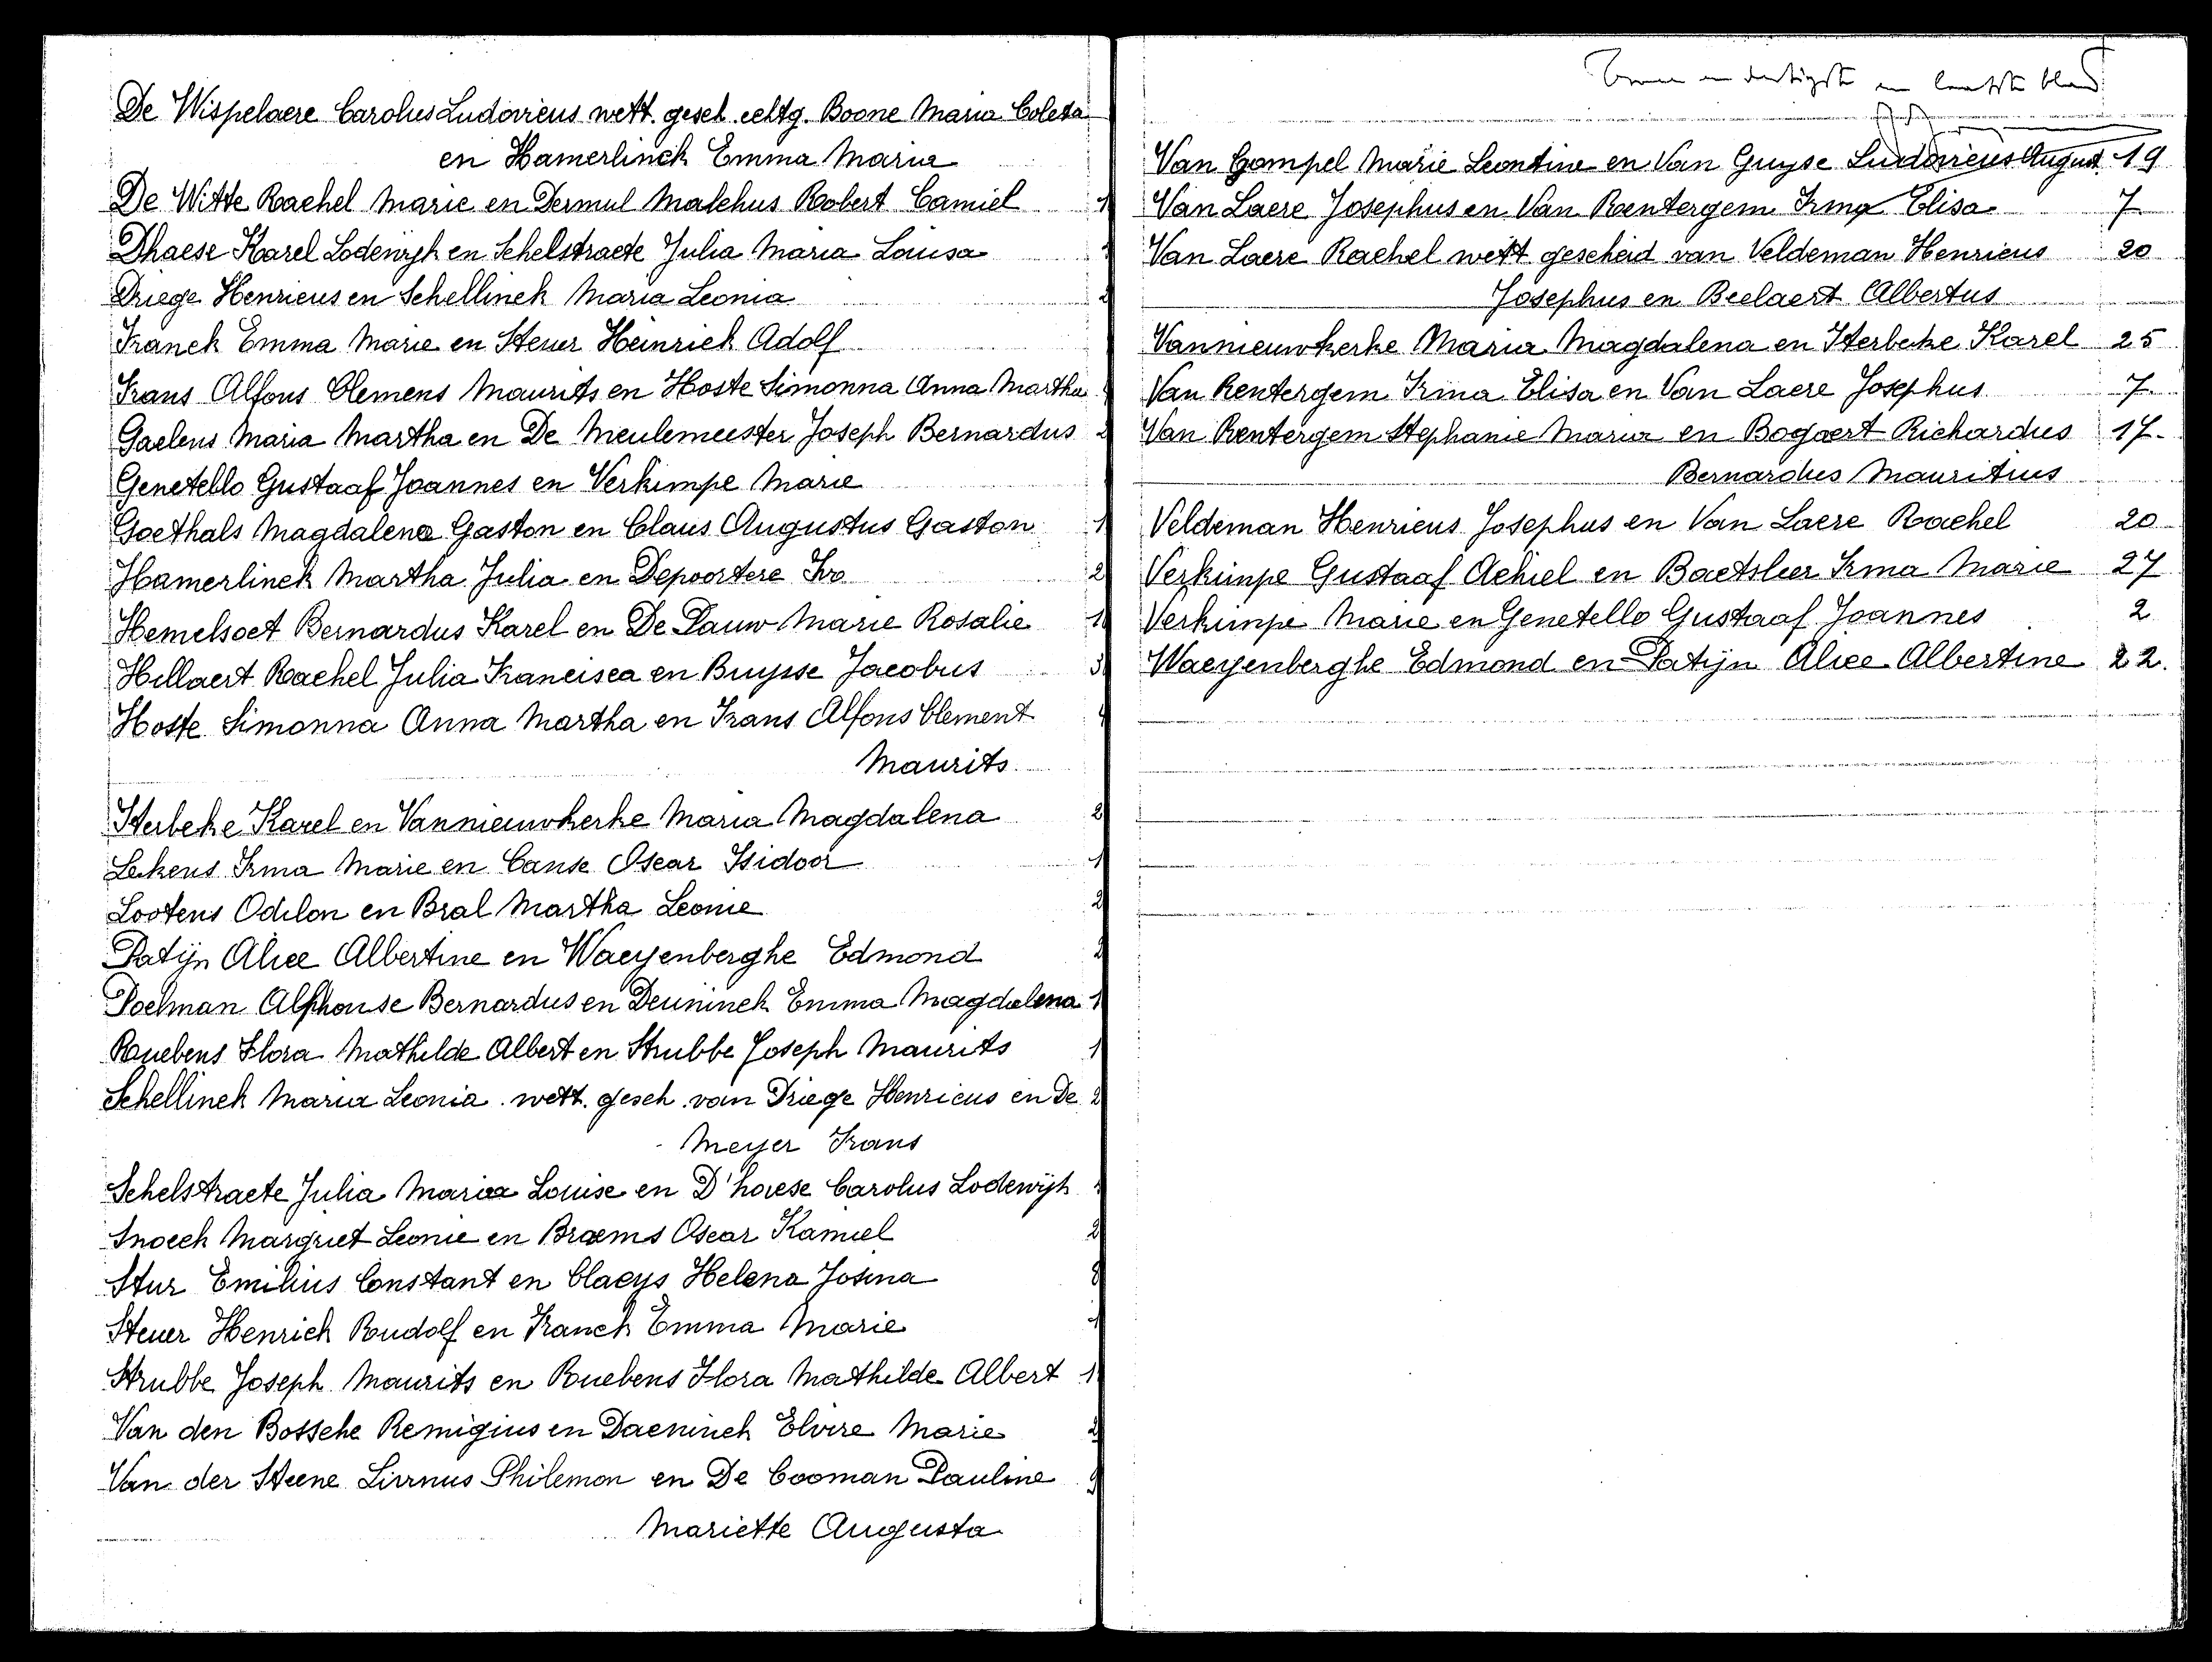 De Wispelaere Carolus Ludovicus wett. gesch. echtg. Boone Maria Coleta
en Hamerlinck Emma Maria
De Witte Rachel Marie en Dermul Malchus Robert Camiel 1
Dhaese Karel Lodewyk en Schelstraete Julia Maria Louisa
Driege Henricus en Schellinck Maria Leonia 2
Franck Emma Marie en Steuer Heinrich Adolf
Frans Alfons Clemens Maurits en Hoste Simonna Anna Martha
Gaelens Maria Martha en De Meulemeester Joseph Bernardus 2
Genetello Gustaaf Joannes en Verkimpe Marie
Goethals Magdalena Gaston en Claus Augustus Gaston 1
Hamerlinck Martha Julia en Depoortere Ivo 2
Hemelsoet Bernardus Karel en De Pauw Marie Rosalie 1
Hillaert Rachel Julia Francisca en Buysse Jacobus 3
Hoste Simonna Anna Martha en Frans Alfons Clement 4
Maurits
Sterbeke Karel en Vannieuwkerke Maria Magdalena 2
Lekens Irma Marie en Canse Oscar Isidoor 1
Lootens Odilon en Bral Martha Leonie 2
Patijn Alice Albertine en Waeyenberghe Edmond 2
Poelman Alphonse Bernardus en Deuninck Emma Magdalena 1
Ruebens Flora Mathilde Albert en Strubbe Joseph Maurits 1
Schellinck Maria Leonia wett. gesch. van Driege Henricus en De 2
Meyer Frans
Schelstraete Julia Maria Louise en D'haese Carolus Lodewijk
Snoeck Margriet Leonie en Braems Oscar Kamiel 2
Stur Emilius Constant en Claeys Helena Josina 8
Steuer Henrich Rudolf en Franck Emma Marie 1
Strubbe Joseph Maurits en Ruebens Flora Mathilde Albert 1
Van den Bossche Remigius en Daeninck Elvire Marie 2
Van der Steene Livinus Philemon en De Cooman Pauline 9
Mariette Augusta
en dertigste en laatste blad
Van Gampel Marie Leontine en Van Guyse Ludovicus August. 19
Van Laere Josephus en Van Rentergem Irma Elisa 7
Van Laere Rachel wett gescheid van Veldeman Henricus 20
Josephus en Beelaert Albertus
Vannieuwkerke Maria Magdalena en Sterbeke Karel 25
Van Rentergem Irma Elisa en Van Laere Josephus 7
Van Rentergem Stephanie Maria en Bogaert Richardus 17.
Bernardus Mauritius
Veldeman Henricus Josephus en Van Laere Rachel 20
Verkimpe Gustaaf Achiel en Baetslier Irma Marie 27
Verkimpe Marie en Genetello Gustaaf Joannes 2
Waeyenberghe Edmond en Patijn Alice Albertine 22.